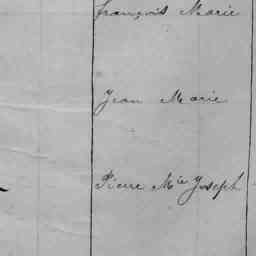 françois Marie
Jean Marie
Pierre Mie Joseph